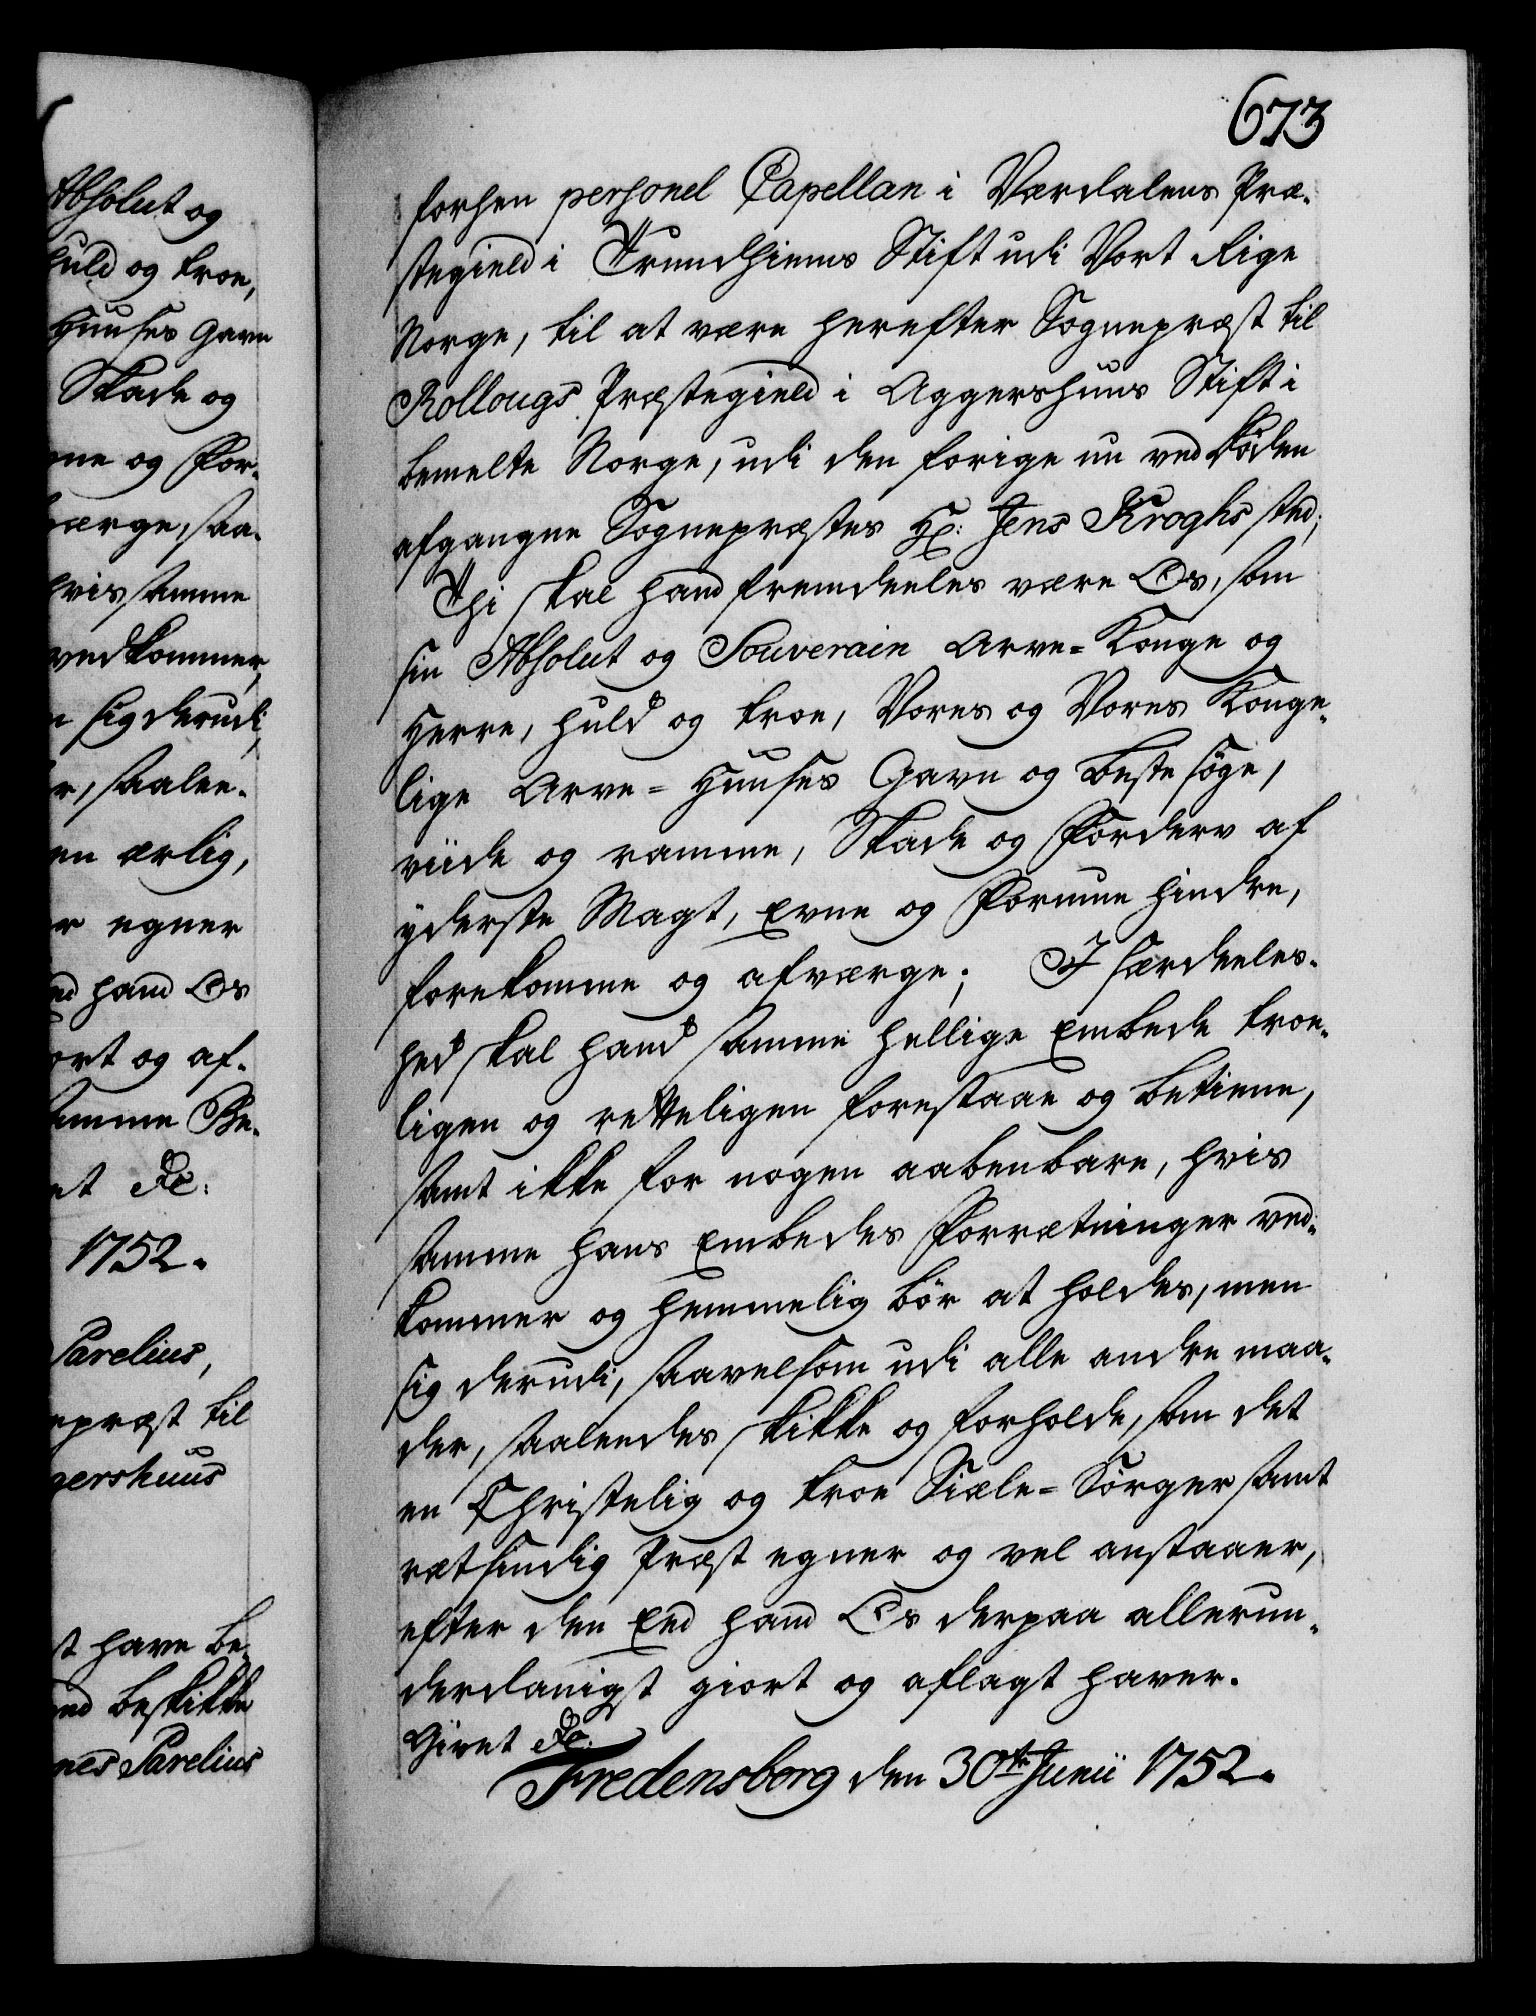 Absolut og
huld og troe,
Huuses Gavn
Skade og
vne og For-
værge, saa-
hvis samme
vedkommer,
sig derudi,
r, saalee-
en ærlig,
r egner
hand Os
ort og af-
amme Be-
et &c:
1752.
Parelius,
epræst til
gershuus
t have be-
beskikke
nes Parelius
673
forhen personel Capellan i Værdalens Præ-
stegield i Trundhiems Stift udi Vort Rige
Norge, til at være herefter Sognepræst til
Rollougs Præstegield i Aggershuus Stift i
bemelte Norge, udi den forige nu ved Døden
afgangne Sognepræstes Hr: Jens Kroghs sted;
Thi skal hand fremdeeles være Os, som
sin Absolut og Souverain Arve-Konge og
Herre, huld og troe, Vores og Vores Konge-
lige Arve-Huuses Gavn og beste søge,
viide og ramme, Skade og Forderv af
yderste Magt, Evne og Formue hindre,
forekomme og afværge; I særdeeles-
hed skal hand samme hellige Embede troe-
ligen og retteligen forestaae og betiene,
samt ikke for nogen aabenbare, hvis
samme hans Embedes Forrætninger ved-
kommer og hemmelig bør at holdes, men
sig derudi, saavelsom udi alle andre maa-
der, saaledes skikke og forholde, som det
en Christelig og troe Siæle-Sørger samt
rætsindig Præst egner og vel anstaaer,
efter den Eed hand Os derpaa allerun-
derdanigst giort og aflagt haver.
Givet &c:
Fredensborg den 30te Junii 1752.